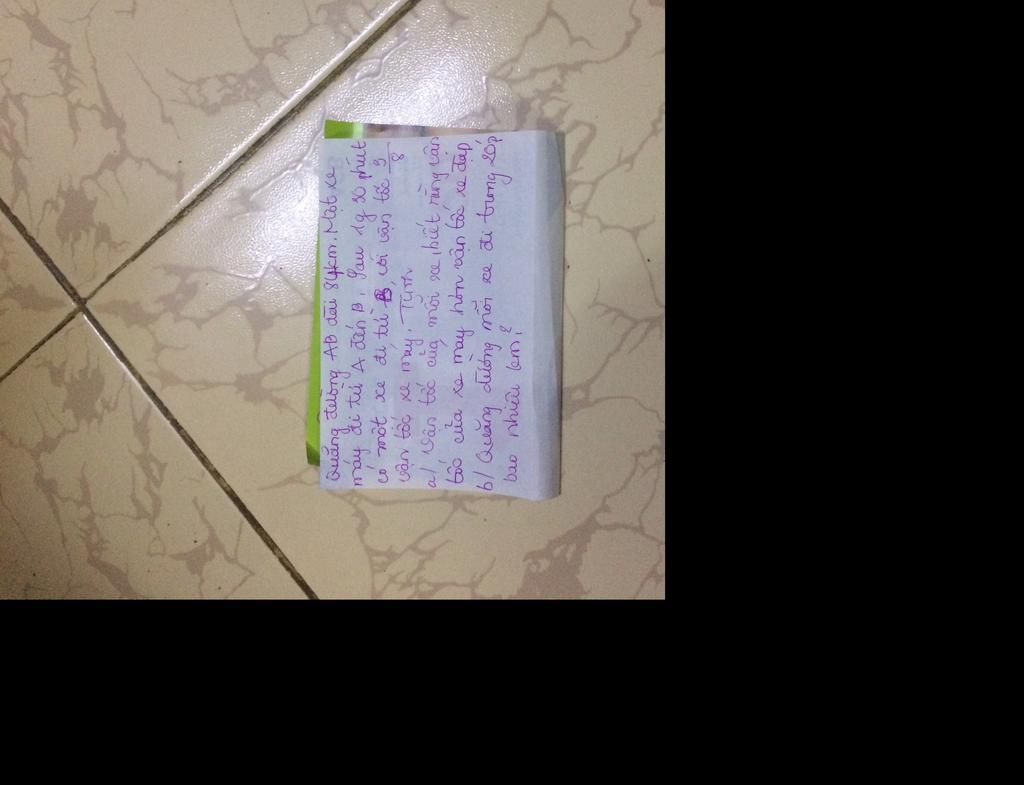 Quãng đường AB dài 84km. Một xe
máy đi từ A đến B, sau 1g 30 phút
có một xe đi từ B, với vận tốc 3/8
vận tốc xe máy. Tính
a/ Vận tốc của mỗi xe, biết rằng vận
tốc của xe máy hơn vận tốc xe đạp
b/ Quãng đường mỗi xe đi trong 20p
bao nhiêu km?